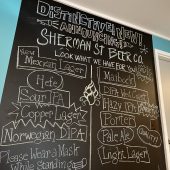 DISTINCTIVE! NEW!
THE ANNOUNCING
SHERMAN ST BEER CO.
LOOK WHAT WE HAVE FOR YOU
New
Mexican Lager
Hefe
Sour IPA
Copper Lager
Norwegian DIPA
Please Wear a Mask
While Standing
Maibock
Hazy IPA
Porter
Pale Ale
Light Lager